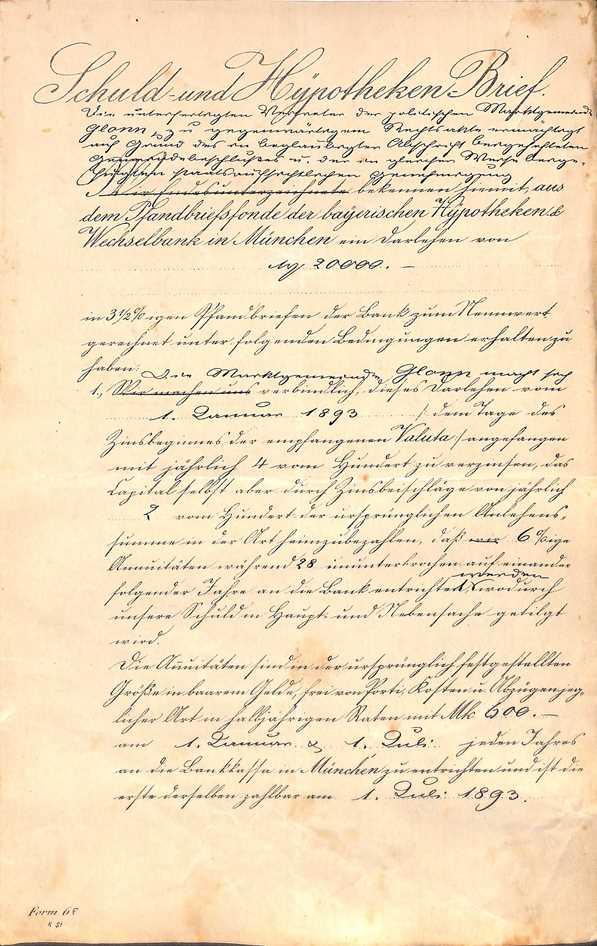 Schuld- und Hÿpotheken-Brief.
Die unterfertigten Vertreter der politischen Marktgemeinde
Glonn, zu gegenwärtigem Rechtsakte ermächtigt
auf Grund des in beglaubigter Abschrift beigehefteten
Gemeindebeschlußes u. der in gleicher Weise beige-
hefteten staatsaufsichtlichen Genehmigung
Wir Endesunterzeichnete bekennen hiemit, aus
dem Pfandbriefsfonde der bayerischen Hÿpotheken &
Wechselbank in München ein Darlehen von
M 20000. —
in 3½% igen Pfandbriefen der Bank zum Nennwert
gerechnet unter folgenden Bedingungen erhalten zu
haben:
Die Marktgemeinde Glonn macht sich
1., Wir machen uns verbindlich, dieses Darlehen vom
1. Januar 1893 / dem Tage des
Zinsbeginnes der empfangenen Valuta / angefangen
mit jährlich 4 vom Hundert zu verzinsen, das
Capital selbst aber durch Zinsbeischläge von jährlich
2 vom Hundert der ursprünglichen Anlehens-
summe in der Art heimzubezahlen, daß wir 6 %ige
Annuitäten während 28 ununterbrochen auf einander
folgender Jahre an die Bank entrichtet werden, wodurch
unsere Schuld in Haupt- und Nebensache getilgt
wird.
Die Annuitäten sind in der ursprünglich festgestellten
Größe in baarem Gelde, frei von Porti, Kosten u. Abzügen jeg-
licher Art in halbjährigen Raten mit Mk. 600. —
am 1. Januar & 1. Juli jeden Jahres
an die Bankkassa in München zu entrichten und ist die
erste derselben zahlbar am 1. Juli 1893.
Form 68